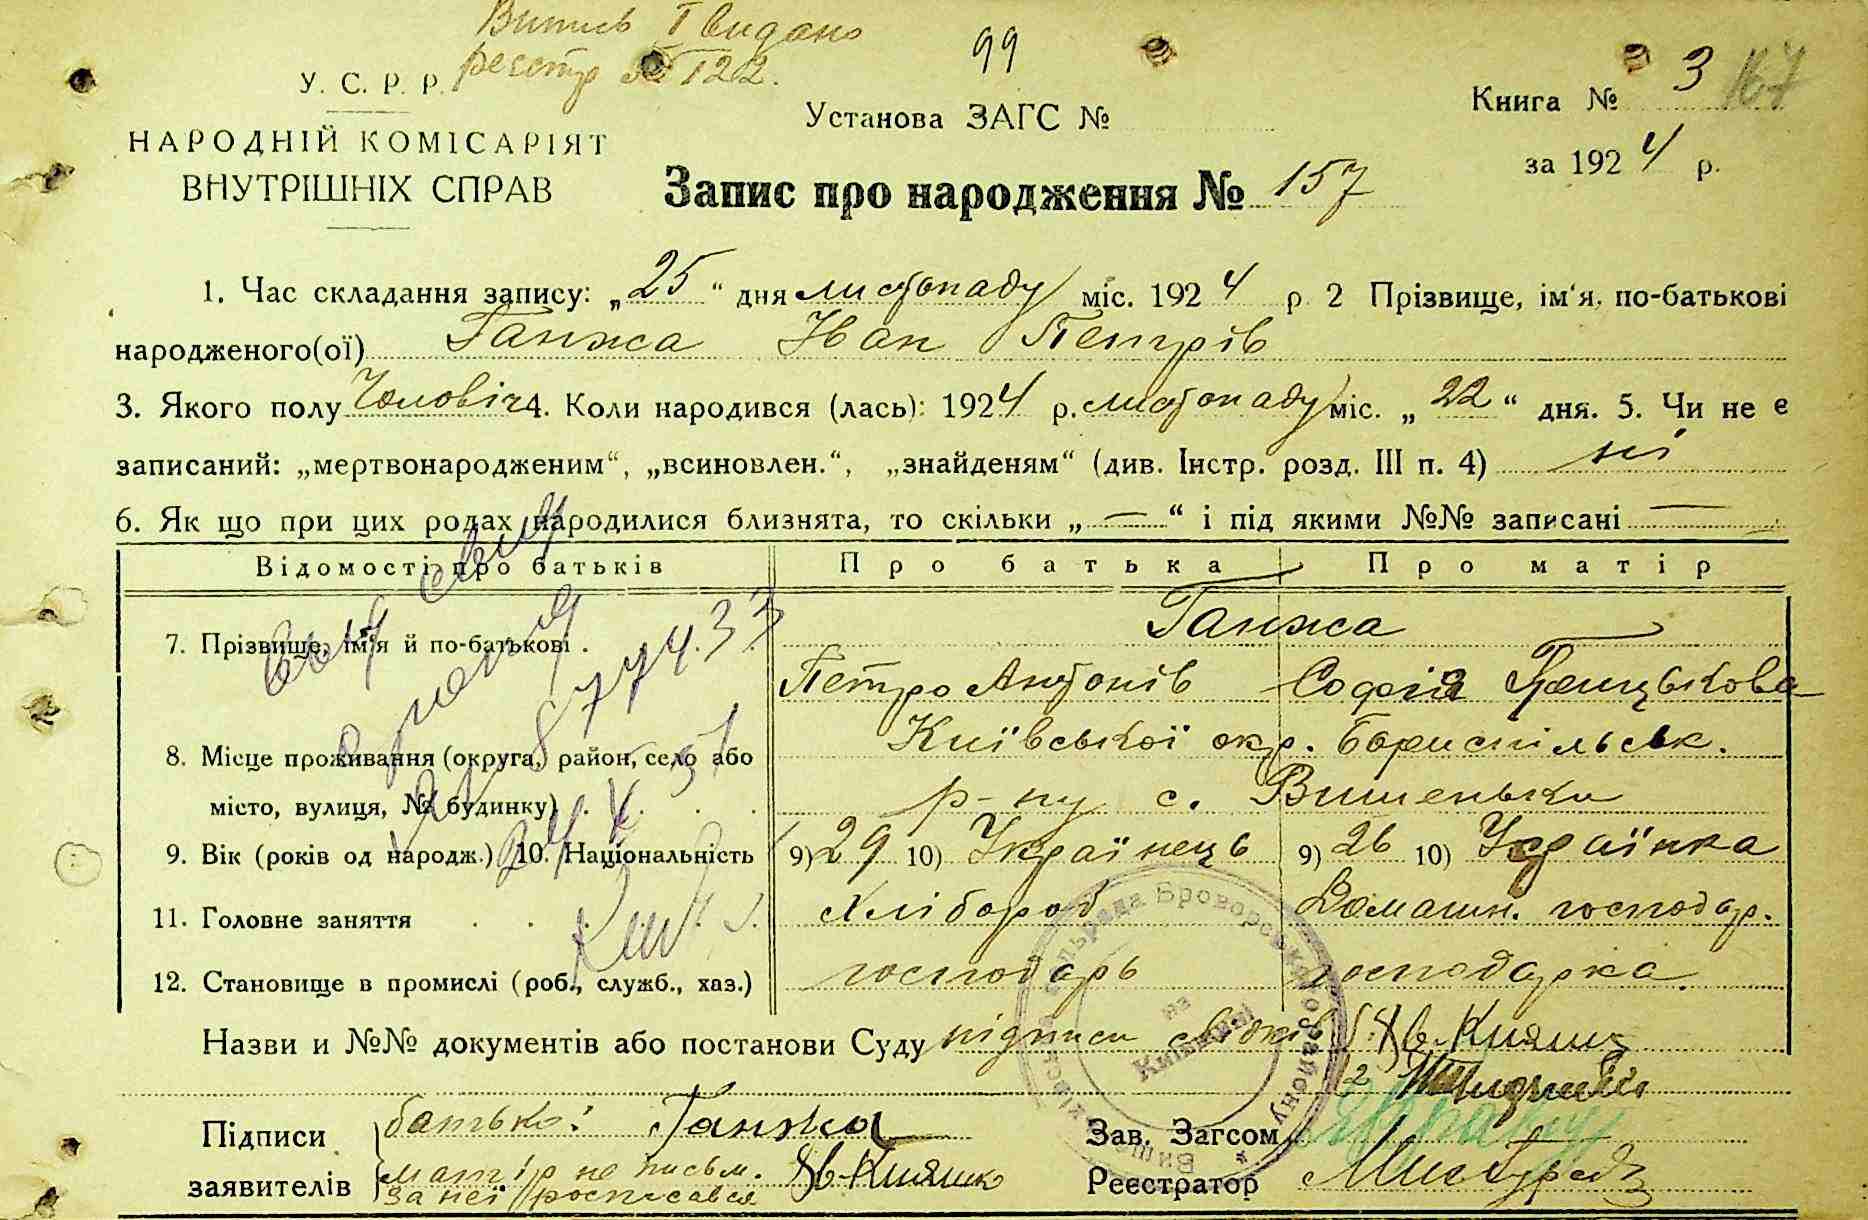 Випись видано
реєстр № 122.
99
У. С. Р. Р.
НАРОДНІЙ КОМІСАРІЯТ
ВНУТРІШНІХ СПРАВ
Установа ЗАГС №
Книга № 3 167
за 1924 р.
Запис про народження № 157
1. Час складання запису: „25“ дня листопаду міс. 1924 р 2 Прізвище, ім‘я, по-батькові
народженого(ої) Ганжа Іван Петрів
3. Якого полу Чоловіч 4. Коли народився (лась): 1924 р. листопаду міс. „22“ дня. 5. Чи не є
записаний: „мертвонародженим“, „всиновлен.“, „знайденям“ (див. Інстр. розд. III п. 4) ні
6. Як що при цих родах народилися близнята, то скільки „—“ і під якими №№ записані —
Відомості про батьків Про батька Про матір
7. Прізвище, ім‘я й по-батькові . Ганжа
Петро Антонів Софія Грицькова
8. Місце проживання (округа, район, село або Київської окр. Бориспільськ.
місто, вулиця, № будинку) . . . . р-ну с. Вишеньки
9. Вік (років од народж.) 10. Національність 9) 29 10) Українець 9) 26 10) Українка
11. Головне заняття . . . . . Хлібороб Домашн. господар.
12. Становище в промислі (роб., служб., хаз.) господарь господарка.
Назви и №№ документів або постанови Суду підписи свідків 1) Кияшко
2
Підписи
заявителів
батько: Ганжа
матір не письм. за неї росписався Кияшко
Зав. Загсом
Реєстратор
877433
на Київщині